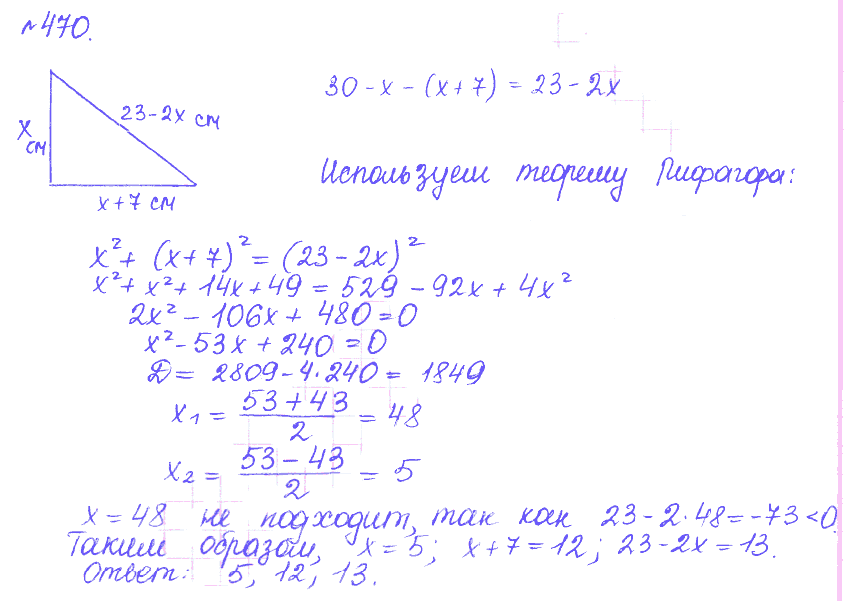 №470.
30 - x - (x + 7) = 23 - 2x
23 - 2x см
x
см
x + 7 см
Используем теорему Пифагора:
x² + (x + 7)² = (23 - 2x)²
x² + x² + 14x + 49 = 529 - 92x + 4x²
2x² - 106x + 480 = 0
x² - 53x + 240 = 0
D = 2809 - 4·240 = 1849
x₁ = (53 + 43)/2 = 48
x₂ = (53 - 43)/2 = 5
x = 48 не подходит, так как 23 - 2·48 = -73 < 0.
Таким образом, x = 5; x + 7 = 12; 23 - 2x = 13.
Ответ: 5, 12, 13.